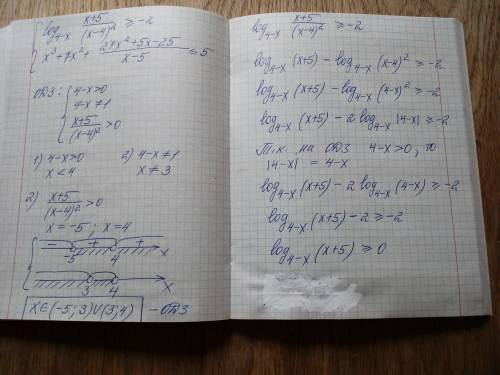 log_{4-x} \frac{x+5}{(x-4)^2} ≥ -2
x^3+7x^2+ \frac{27x^2+5x-25}{x-5} ≤ 5
ОДЗ: 4-x>0
4-x≠1
\frac{x+5}{(x-4)^2} >0
1) 4-x>0 2) 4-x≠1
x<4 x≠3
2) \frac{x+5}{(x-4)^2} >0
x=-5; x=4
- + +
-5 4 x
3 4 x
x∈(-5;3)∪(3;4) -ОДЗ
log_{4-x} \frac{x+5}{(x-4)^2} ≥ -2
log_{4-x} (x+5) - log_{4-x} (x-4)^2 ≥ -2
log_{4-x} (x+5) - log_{4-x} (4-x)^2 ≥ -2
log_{4-x} (x+5) - 2 log_{4-x} |4-x| ≥ -2
Т.к. на ОДЗ 4-x>0, то
|4-x| = 4-x
log_{4-x} (x+5) - 2 log_{4-x} (4-x) ≥ -2
log_{4-x} (x+5) - 2 ≥ -2
log_{4-x} (x+5) ≥ 0